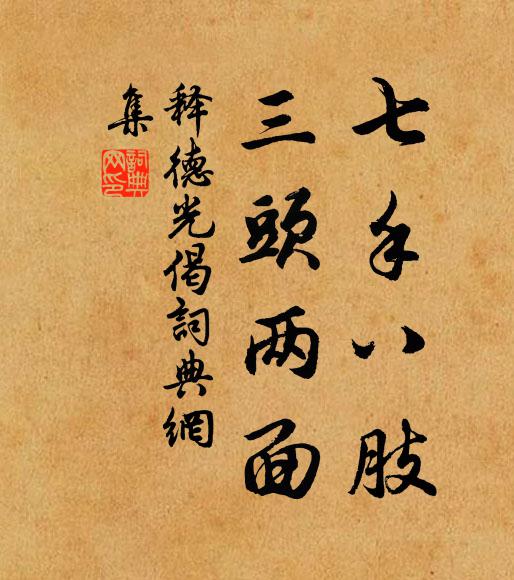 七手八肢
三頭两面
释德光偈詞典網
集
詞典网印